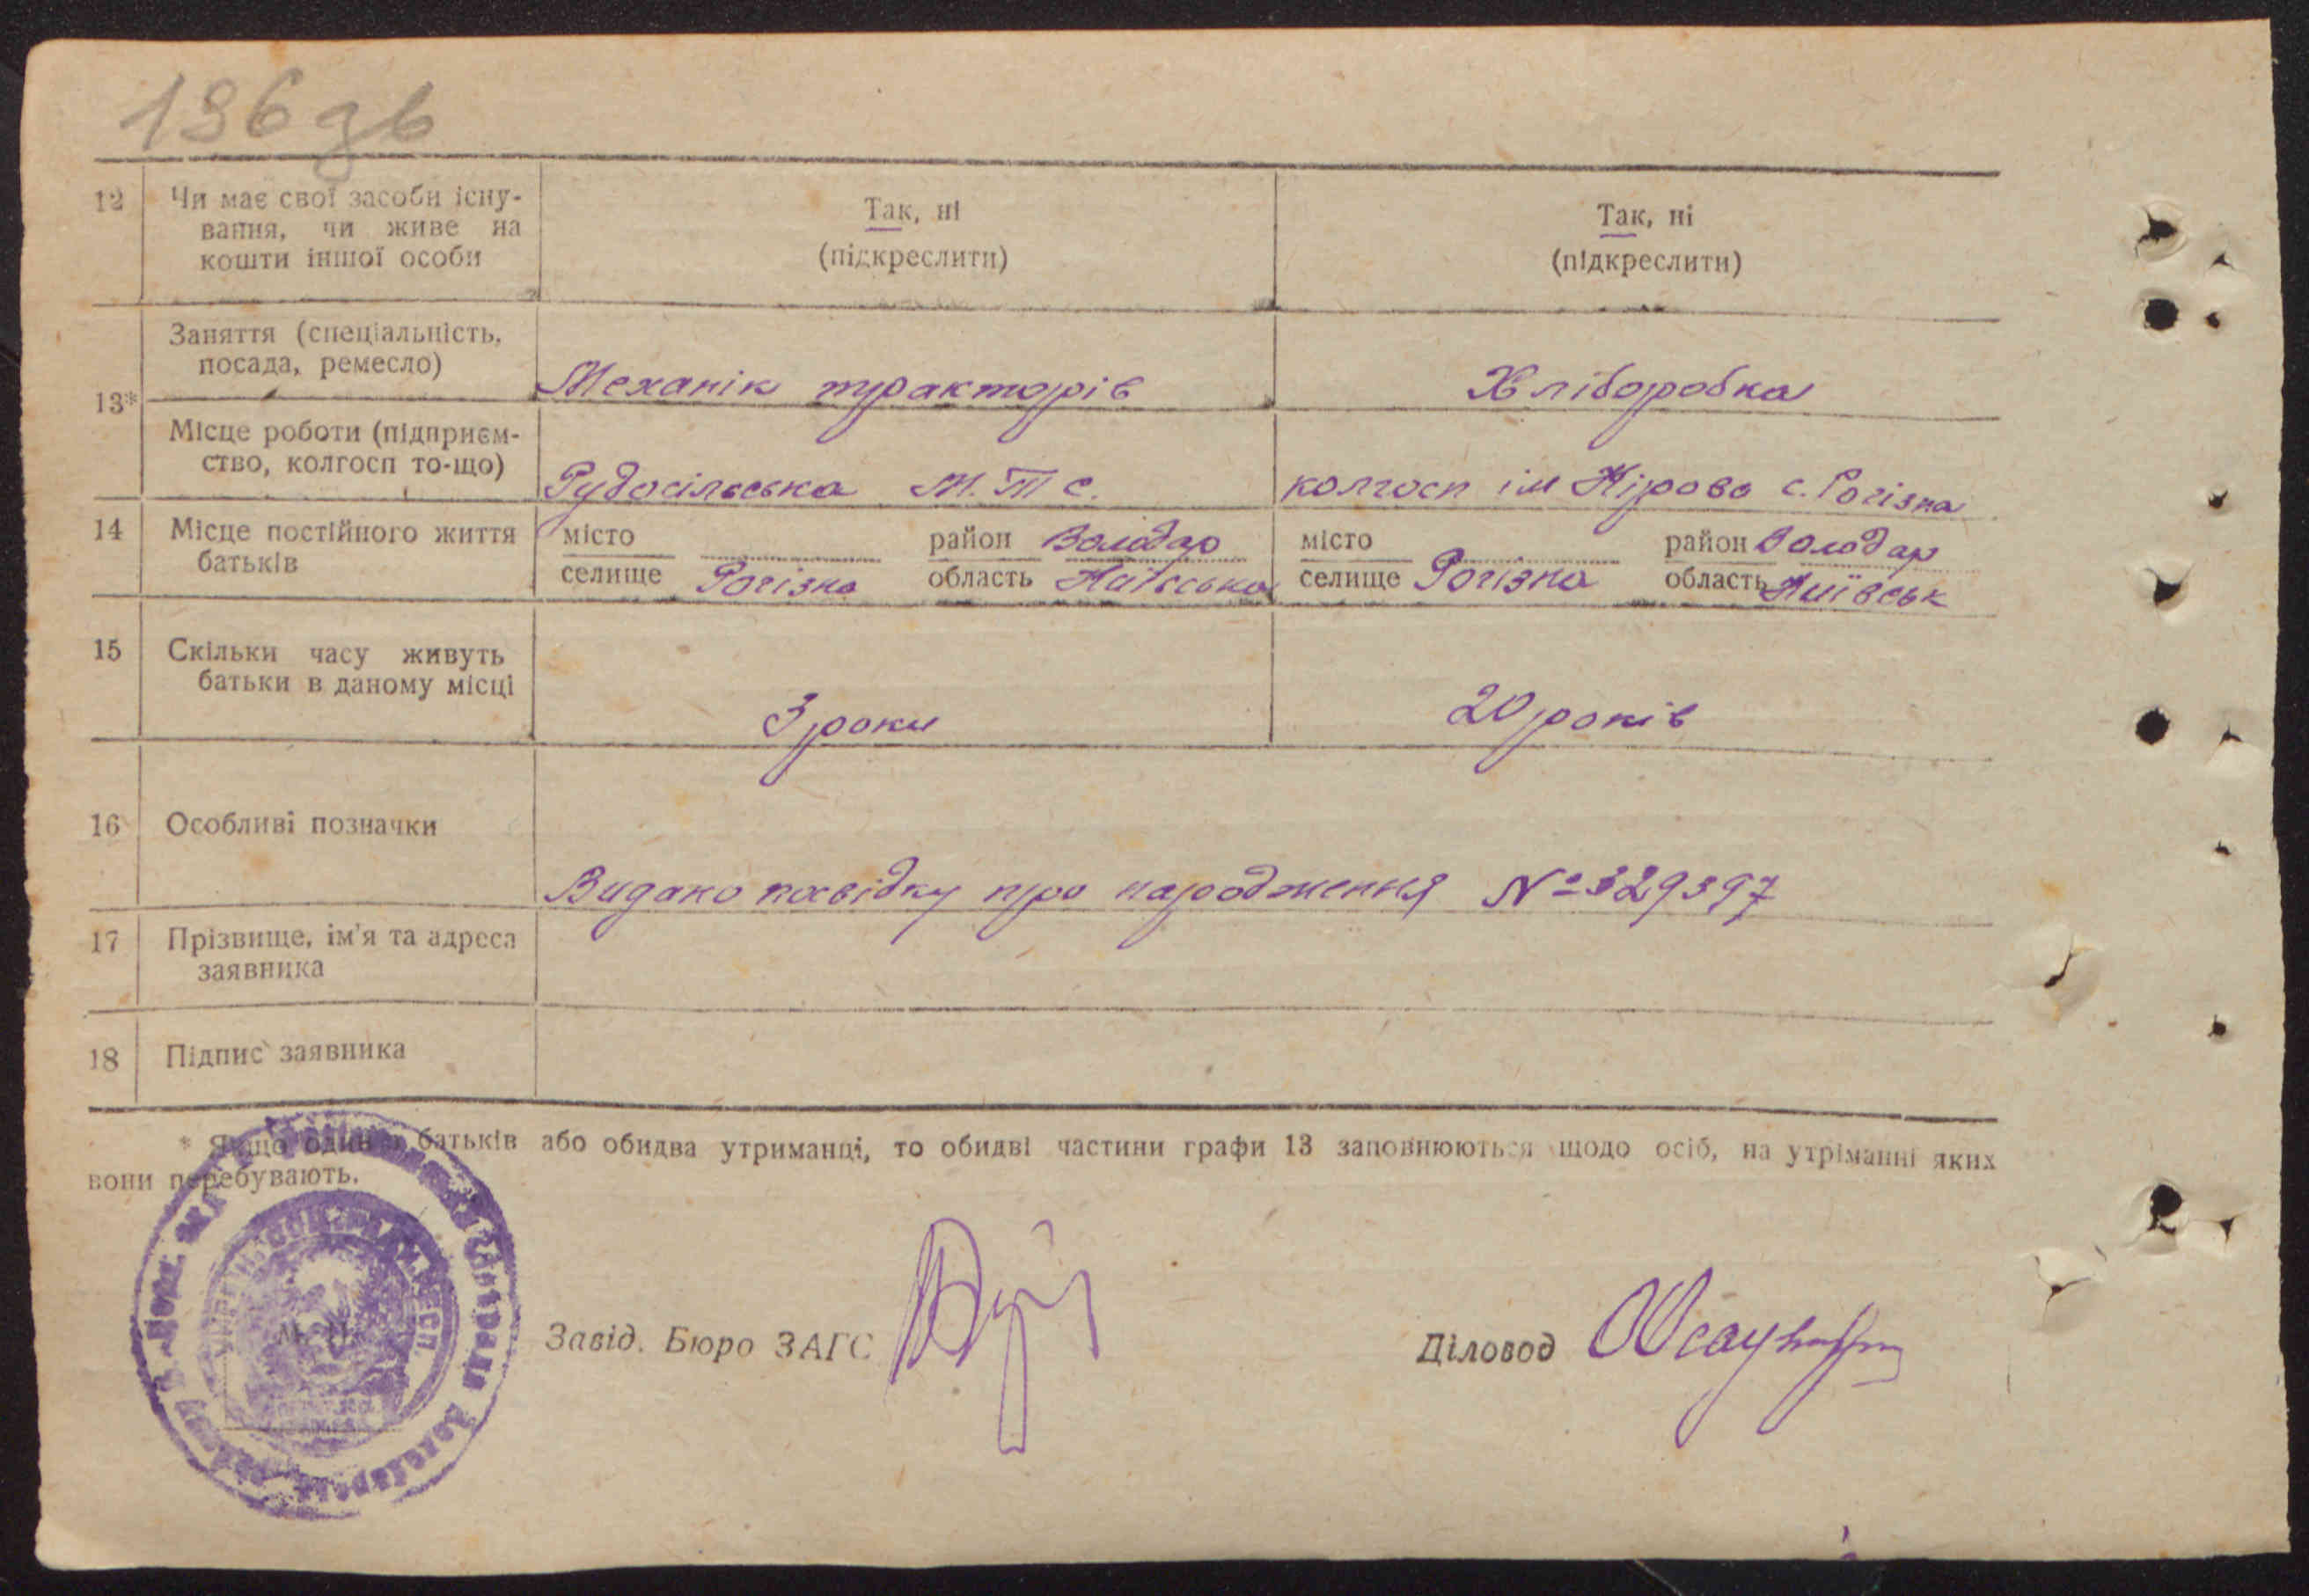 136 зв
12 Чи має свої засоби існу-
вання, чи живе на
кошти іншої особи
Так, ні
(підкреслити)
Так, ні
(підкреслити)
13* Заняття (спеціальність,
посада, ремесло)
Механік тракторів
Хліборобка
Місце роботи (підприєм-
ство, колгосп то-що)
Рудосільська М.Т.С.
колгосп ім Кірова с. Рогізна
14 Місце постійного життя
батьків
місто район Володар
селище Рогізна область Київська
місто район Володар
селище Рогізна область Київськ
15 Скільки часу живуть
батьки в даному місці
3 роки
20 років
16 Особливі позначки
Видано посвідку про народження № 329397
17 Прізвище, ім'я та адреса
заявника
18 Підпис заявника
* Якщо один з батьків або обидва утриманці, то обидві частини графи 13 заповнюються щодо осіб, на утріманні яких
вони перебувають.
Завід. Бюро ЗАГС
Діловод